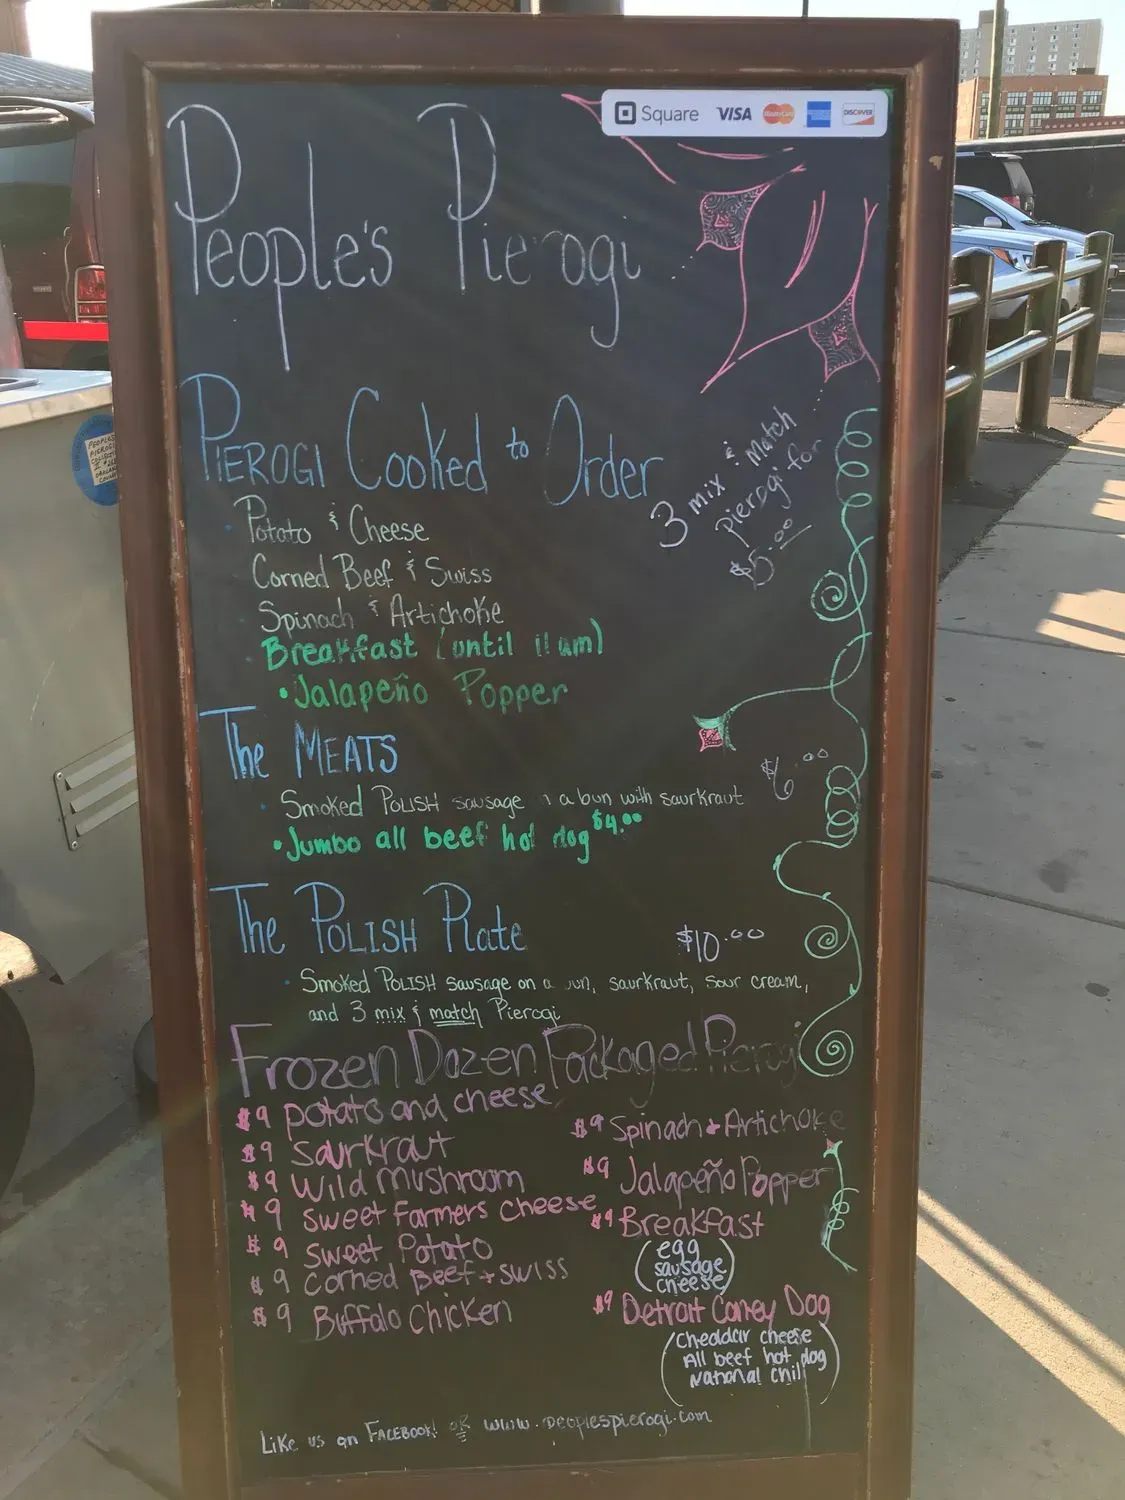 Square VISA MasterCard DISCOVER
People's Pierogi
PIEROGI Cooked to Order
3 mix & match
pierogi for
$5.00
Potato & Cheese
Corned Beef & Swiss
Spinach & Artichoke
Breakfast (until 11am)
• Jalapeño Popper
The MEATS
$6.00
• Smoked POLISH sausage n a bun with saurkraut
• Jumbo all beef hot dog $4.00
The POLISH Plate $10.00
• Smoked POLISH sausage on a un, saurkraut, sour cream,
and 3 mix & match Pierogi
Frozen Dozen Packaged Pierogi
$9 potato and cheese
$9 Saurkraut
$9 Wild Mushroom
$9 Sweet Farmers Cheese
$9 Sweet Potato
$9 Corned Beef + Swiss
$9 Buffalo Chicken
$9 Spinach + Artichoke
$9 Jalapeño Popper
$9 Breakfast
(egg
sausage
cheese)
$9 Detroit Coney Dog
(Cheddar cheese
All beef hot dog
National Chili)
Like us on FACEBOOK! or www.peoplespierogi.com